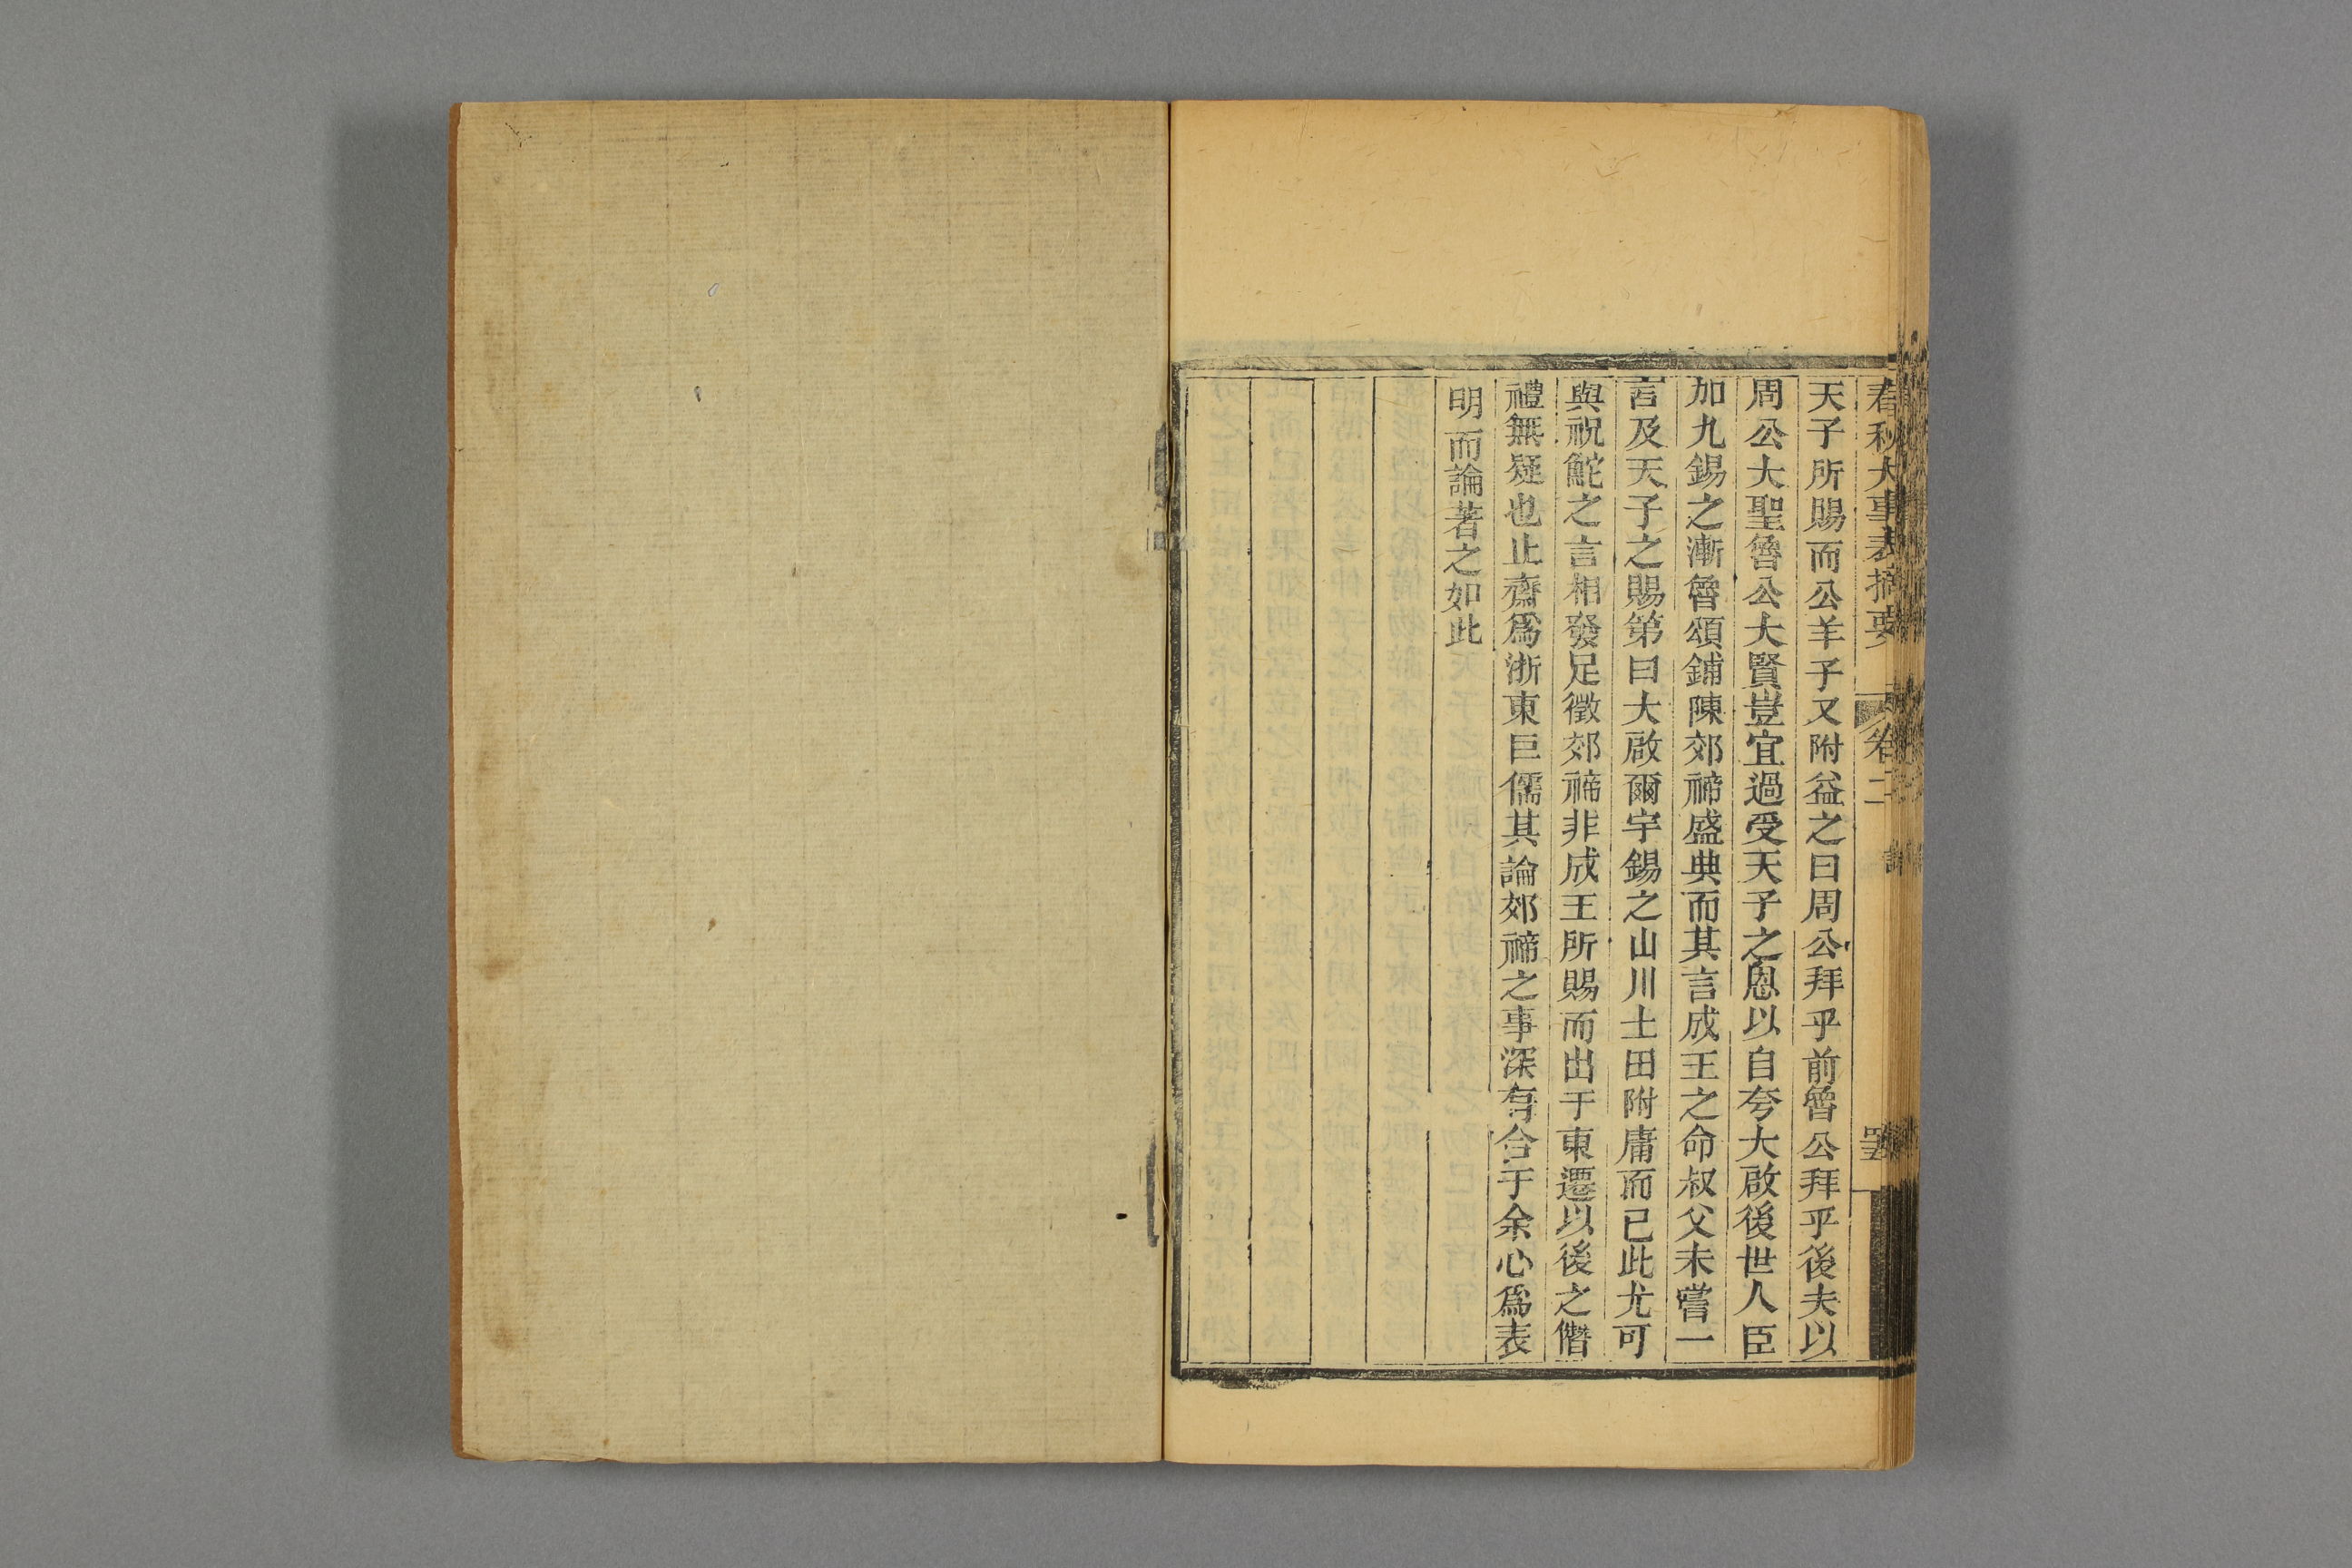 春秋大事表摘要
卷二
天子所賜而公羊子又附益之曰周公拜乎前魯公拜乎後夫以
周公大聖魯公大賢豈宜過受天子之恩以自夸大啟後世人臣
加九錫之漸魯頌鋪陳郊禘盛典而其言成王之命叔父未嘗一
言及天子之賜第曰大啟爾宇錫之山川土田附庸而已此尤可
與祝鮀之言相發足徵郊禘非成王所賜而出于東遷以後之僭
禮無疑也止齋爲浙東巨儒其論郊禘之事深有合于余心爲表
明而論著之如此